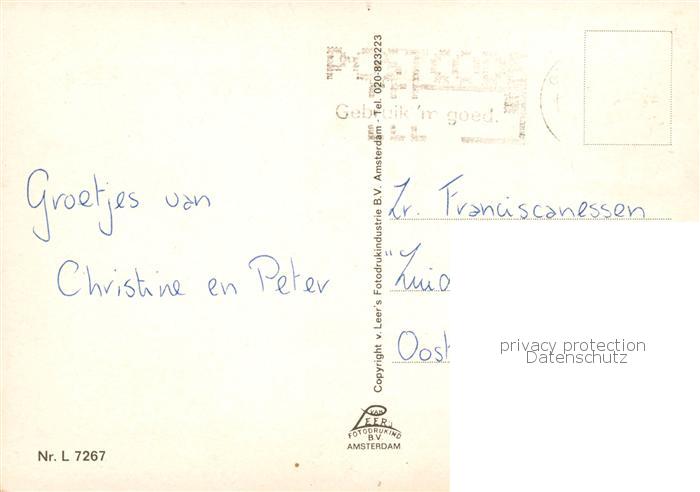 POSTCODE
Gebruik 'm goed.
Groetjes van
Christine en Peter
Copyright v. Leer's Fotodrukindustrie B.V. Amsterdam - Tel. 020-823223
Zr. Franciscanessen
"Zuid
Oost
privacy protection
Datenschutz
VAN
LEER'S
FOTODRUKIND
B.V.
AMSTERDAM
Nr. L 7267